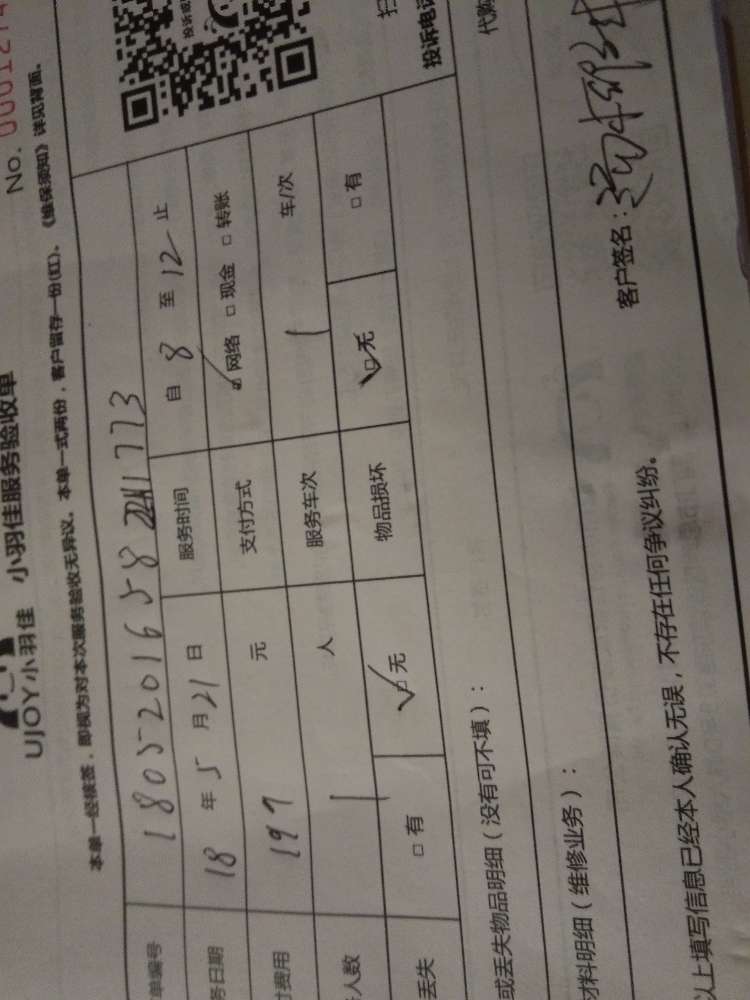 No. 0001274
UJOY小羽佳 小羽佳服务验收单
本单一经接签，即视为对本次服务验收无异议。本单一式两份，客户留存一份(红)、《维保须知》详见背面。
单编号 180520165822411773
务日期 18 年 5 月 21 日 服务时间 自 8 至 12 止
费用 197 元 支付方式 ☑网络 □现金 □转账
人数 1 人 服务车次 1 车/次
丢失 □有 ☑无 物品损坏 ☑无 □有
投诉电话
或丢失物品明细（没有可不填）：
代购
材料明细（维修业务）：
以上填写信息已经本人确认无误，不存在任何争议纠纷。 客户签名：